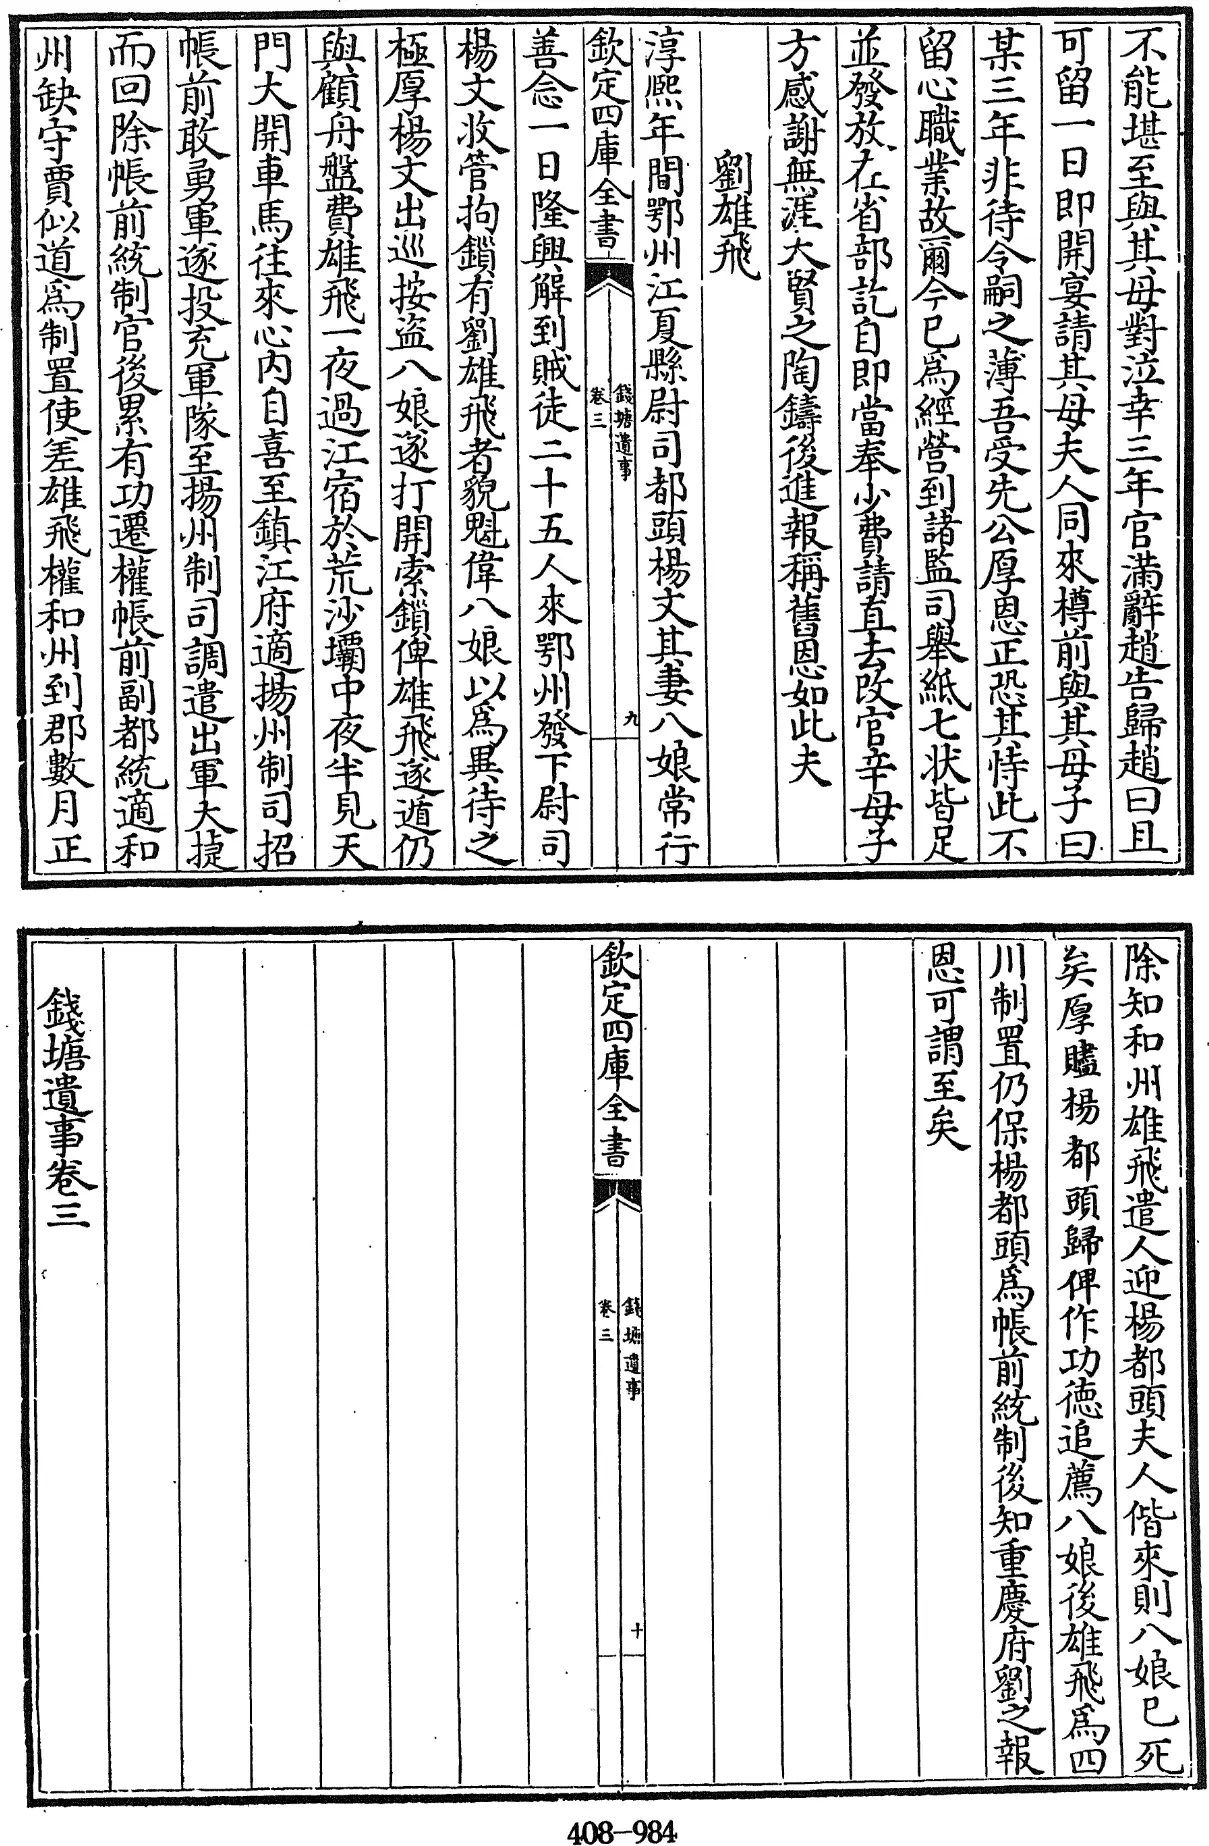 不能堪至與其母對泣幸三年官滿辭趙告歸趙曰且
可留一日即開宴請其母夫人同來樽前與其母子曰
某三年非待令嗣之薄吾受先公厚恩正恐其恃此不
留心職業故爾今已爲經營到諸監司舉紙七狀皆足
並發放在省部訖自即當奉少費請直去改官辛母子
方感謝無涯大賢之陶鑄後進報稱舊恩如此夫
劉雄飛
淳熙年間鄂州江夏縣尉司都頭楊文其妻八娘常行
欽定四庫全書
錢塘遺事
卷三
九
善念一日隆興解到賊徒二十五人來鄂州發下尉司
楊文收管拘鎖有劉雄飛者貌魁偉八娘以爲異待之
極厚楊文出巡按盜八娘遂打開索鎖俾雄飛遂遁仍
與顧舟盤費雄飛一夜過江宿於荒沙壩中夜半見天
門大開車馬往來心内自喜至鎮江府適揚州制司招
帳前敢勇軍遂投充軍隊至揚州制司調遣出軍大捷
而回除帳前統制官後累有功遷權帳前副都統適和
州缺守賈似道爲制置使差雄飛權和州到郡數月正
除知和州雄飛遣人迎楊都頭夫人偕來則八娘已死
矣厚贐楊都頭歸俾作功德追薦八娘後雄飛爲四
川制置仍保楊都頭爲帳前統制後知重慶府劉之報
恩可謂至矣
欽定四庫全書
錢塘遺事
卷三
十
錢塘遺事卷三
408-984